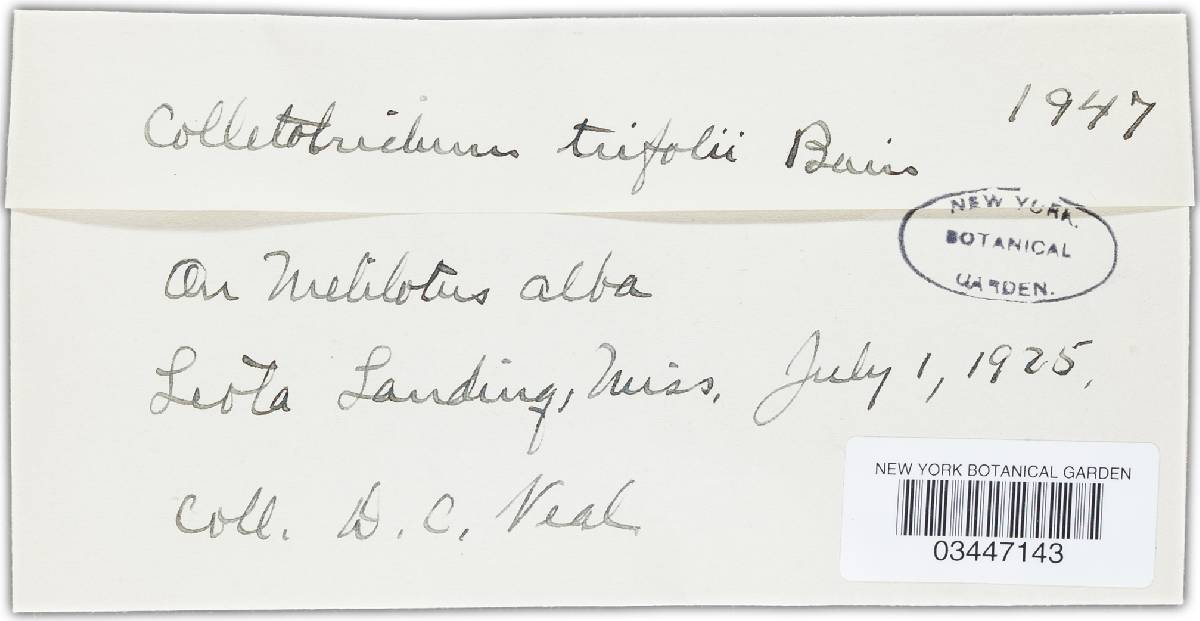 1947
Colletotrichum trifolii Bain
NEW YORK
BOTANICAL
GARDEN.
On Melilotus alba
Leota Landing, Miss. July 1, 1925.
Coll. D. C. Neal
NEW YORK BOTANICAL GARDEN
03447143